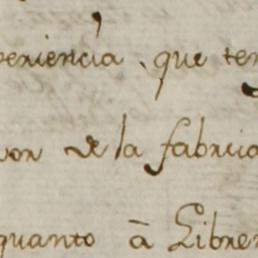 periencia, que ten
vor de la fabrica
quanto à Librer